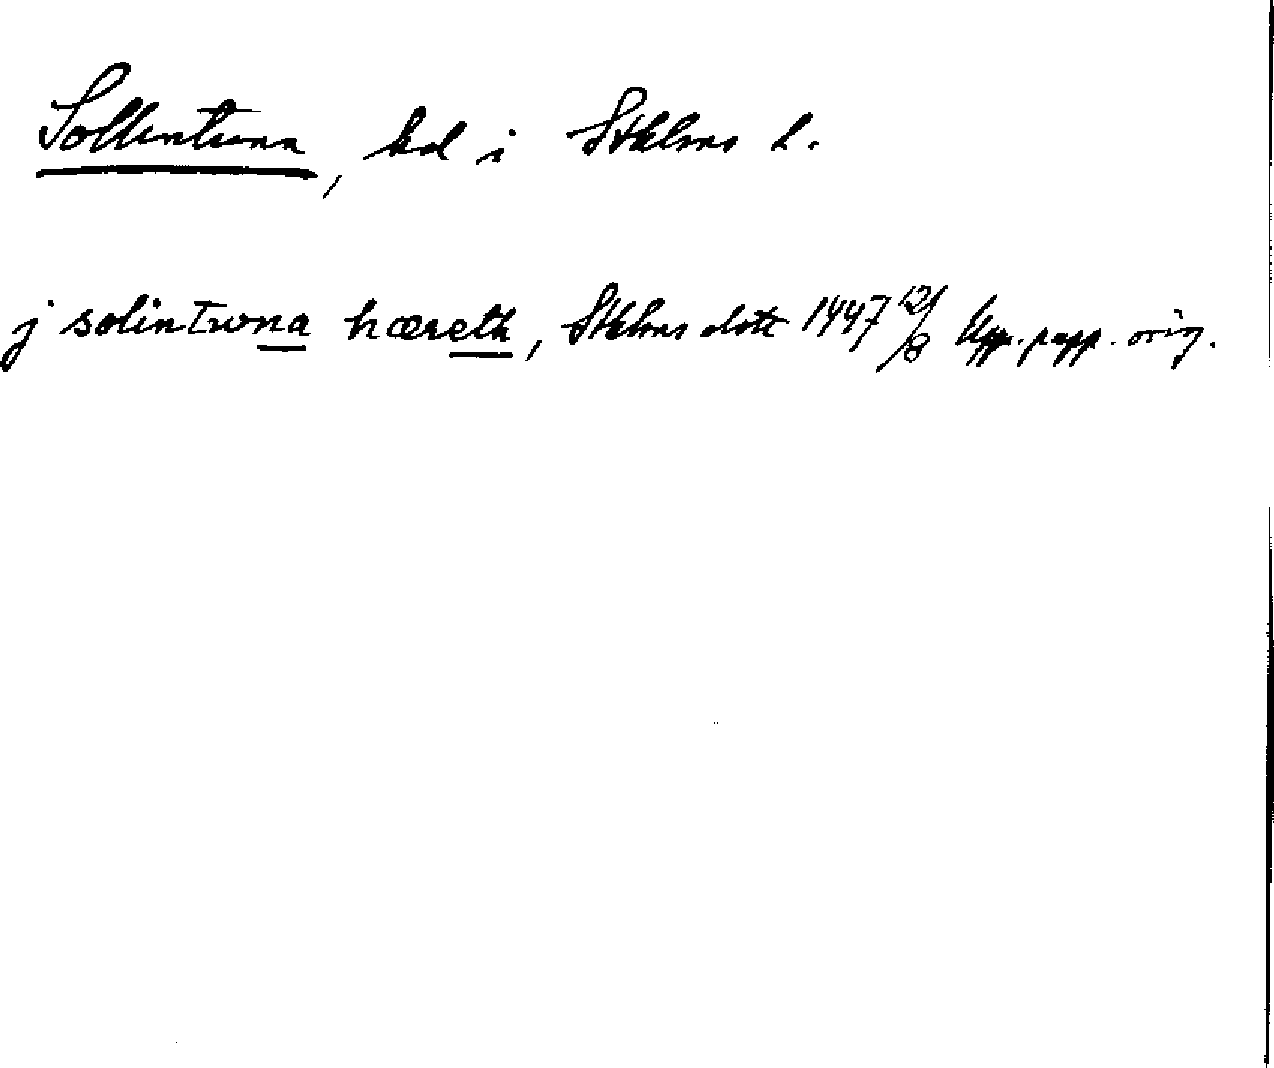 Sollentuna, hd i Sthlms l.
j solintwna hæreth, Sthlms slott 1447 12/8 Upps. papp. orig.